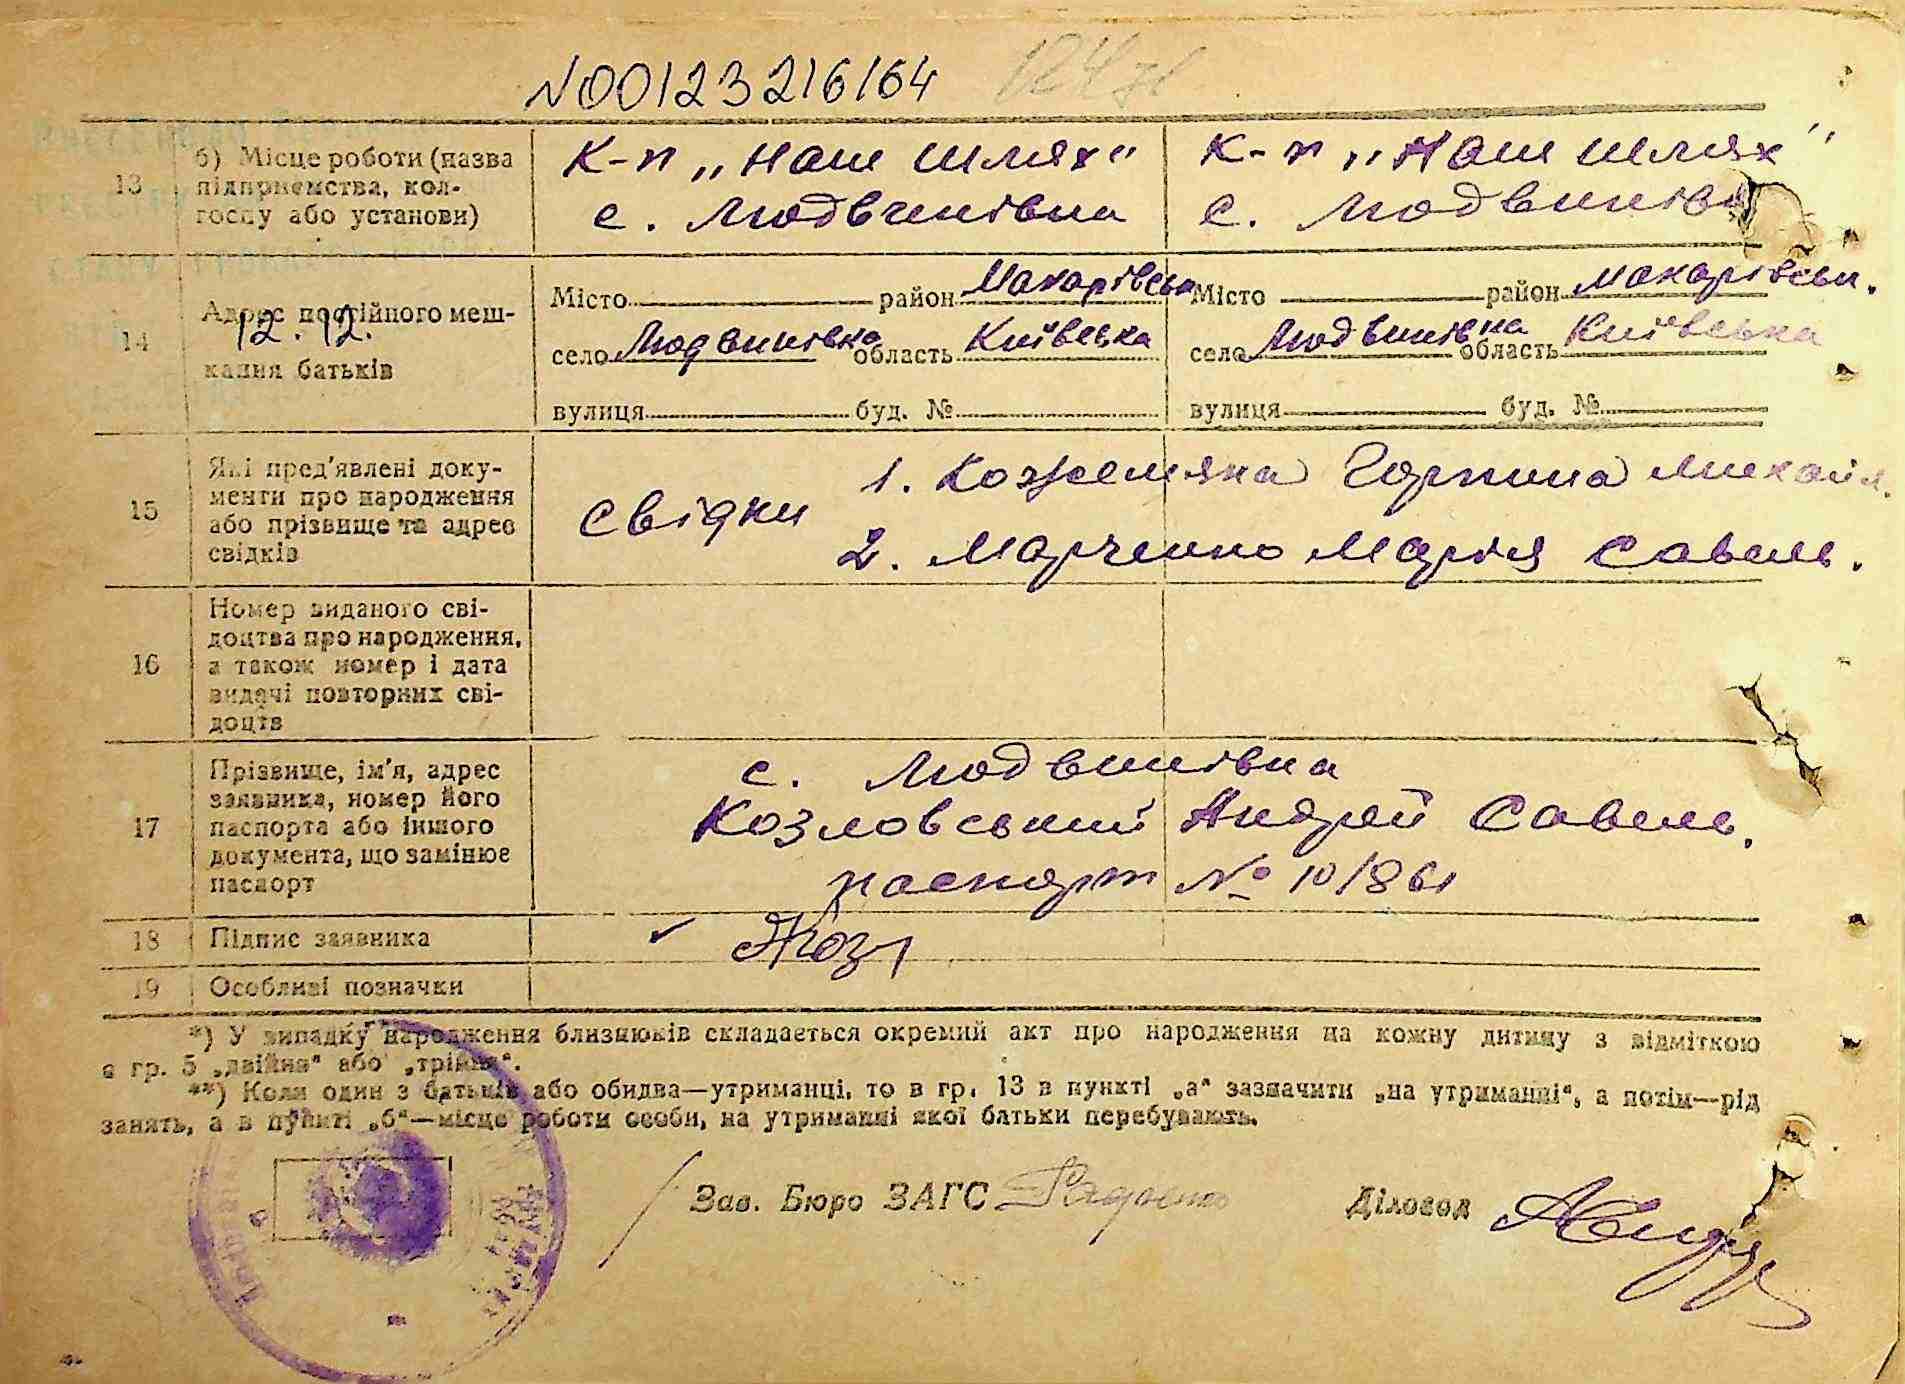 N00123216164
13
б) Місце роботи (назва підприємства, колгоспу або установи)
К-п „Наш шлях"
с. Людвинівка
К-п „Наш шлях"
с. Людвинівка
14
Адрес постійного мешкання батьків
12.12.
Місто район Макарівськ
село Людвинівка область Київська
вулиця буд. №
Місто район Макарівськ.
село Людвинівка область Київська
вулиця буд. №
15
Які пред'явлені документи про народження або прізвище та адрес свідків
Свідки
1. Кожемяка Горпина Михайл.
2. Марченко Марія Савель.
16
Номер виданого свідоцтва про народження, а також номер і дата видачі повторних свідоцтв
17
Прізвище, ім'я, адрес заявника, номер його паспорта або іншого документа, що замінює паспорт
с. Людвинівка
Козловський Андрей Савель.
паспорт № 10/861
18
Підпис заявника
Коз
19
Особливі позначки
*) У випадку народження близнюків складається окремий акт про народження на кожну дитину з відміткою
в гр. 5 „двійня" або „трійня".
**) Коли один з батьків або обидва—утриманці, то в гр. 13 в пункті „а" зазначити „на утриманні", а потім—рід
занять, а в пункті „б"—місце роботи особи, на утриманні якої батьки перебувають.
Зав. Бюро ЗАГС
Діловод